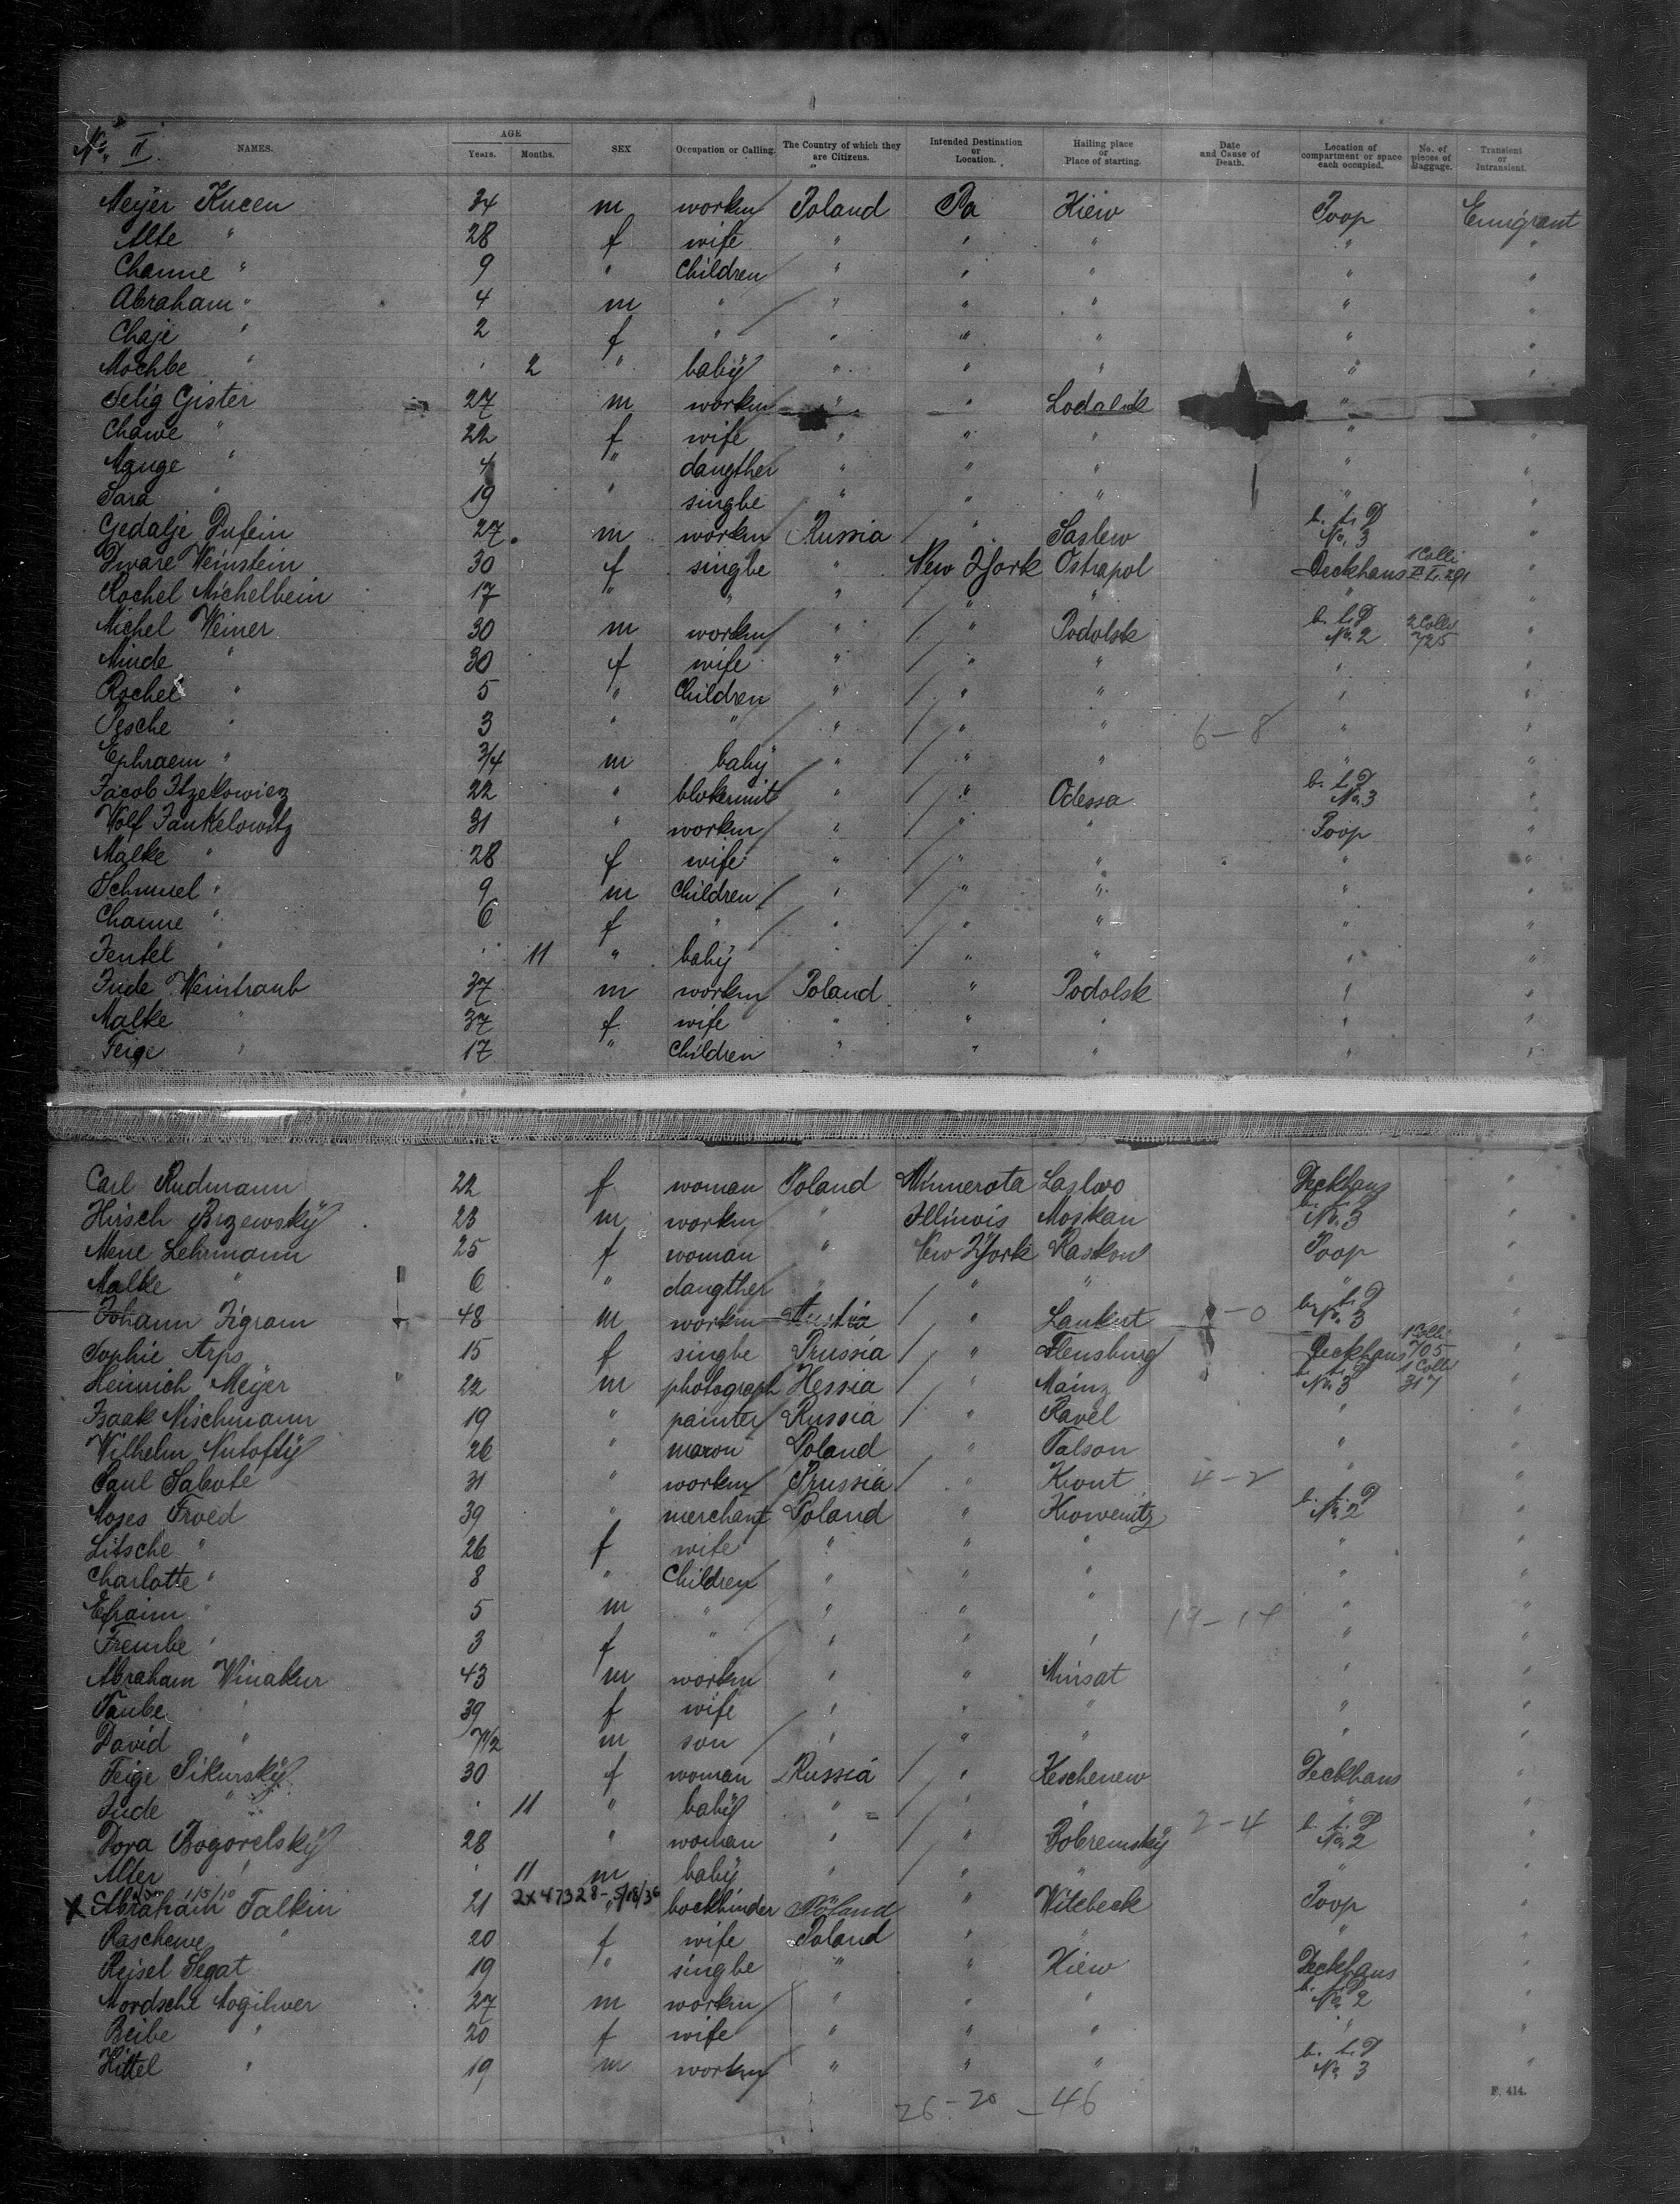 No. II.
NAMES. AGE Years. Months. SEX Occupation or Calling. The Country of which they are Citizens. Intended Destination or Location. Hailing place or Place of starting. Date and Cause of Death. Location of compartment or space each occupied. No. of pieces of Baggage. Transient or Intransient.
Meijer Kucen 34 m workm Poland Pa Kiew Poop Emigrant
Alte " 28 f wife " " " " "
Channe " 9 " Children " " " " "
Abraham " 4 m " " " " " "
Chaje " 2 f " " " " " "
Mochbe " 2 " baby " " " " "
Selig Gister 27 m workm " " " "
Chawe " 22 f wife " " " " "
" 4 " daugther " " " " "
Sara " 19 " singbe " " " " "
Gedalje 27 m workm Russia " Saslew b. t. D No. 3 "
Dware Weinstein 30 f singbe " New York Ostrapol Deckhaus 1 Colli "
Rochel Michelbein 17 " " " " " " "
Michel Weiner 30 m workm " " Podolsk b. t. D No. 2 2 Colli 725 "
Minde " 30 f wife " " " " "
Rochel " 5 " Children " " " " "
Pesche " 3 " " " " " " "
6-8
Ephraem " 3/4 m baby " " " " "
Jacob Itzekowicz 22 " " " Odessa b. t. D No. 3 "
Wolf Jankelowitz 31 " workm " " " Poop "
Malke " 28 f wife " " " " "
Schmuel " 9 m Children " " " " "
Channe " 6 f " " " " " "
Jentel " 11 " baby " " " " "
Jude Weintraub 37 m workm Poland " Podolsk " "
Malke " 37 f wife " " " " "
Feige " 17 " Children " " " " "
Carl Rudmann 22 f woman Poland Minnerota Deckhaus "
Hirsch Brzewsky 23 m workm " Illinois Moskau b. No. 3 "
Mene Lehrmann 25 f woman " New York Raskow Poop "
Malke " 6 " daugther " " " " "
Johann 48 m workm Austria " Lankut 0-0 b. t. D No. 3 "
Sophie Arps 15 f singbe Prussia " Flensburg Deckhaus 1 Colli 705 "
Heinrich Meijer 22 m photograph Hessia " Mainz b. t. D No. 3 1 Colli 317 "
Isaak Mischmann 19 " painter Russia " Ravel " "
Wilhelm 26 " maron Poland " Talson " "
Paul Sabote 31 " workm Prussia " 4-2 " "
Moses Froed 39 " merchant Poland " b. t. D No. 2 "
Litsche " 26 f wife " " " " "
Charlotte " 8 " Children " " " " "
Efraim " 5 m " " " " " "
19-14
Frembe " 3 f " " " " " "
Abraham Winakur 43 m workm " " Minsat " "
Taube " 39 f wife " " " " "
David " 7 1/2 m son " " " " "
Feige Pikursky 30 f woman Russia " Keschenew Deckhaus "
Jude " 11 " baby " " " " "
Dora Bogorelsky 28 " woman " " Bobremsky 2-4 b. t. D No. 2 "
Alter " 11 m baby " " " " "
2x47328-5/18/36
X Abraham Talkin 21 " bockbinder Poland Witebeck Poop "
Raschewe " 20 f wife Poland " " " "
Reisel Segat 19 " singbe " " Kiew Deckhaus "
Mordsche Mogilwer 27 m workm " " " b. t. D No. 2 "
Beibe " 20 f wife " " " " "
Kittel " 19 m workm " " " b. t. D No. 3 "
26-20-46
F. 414.